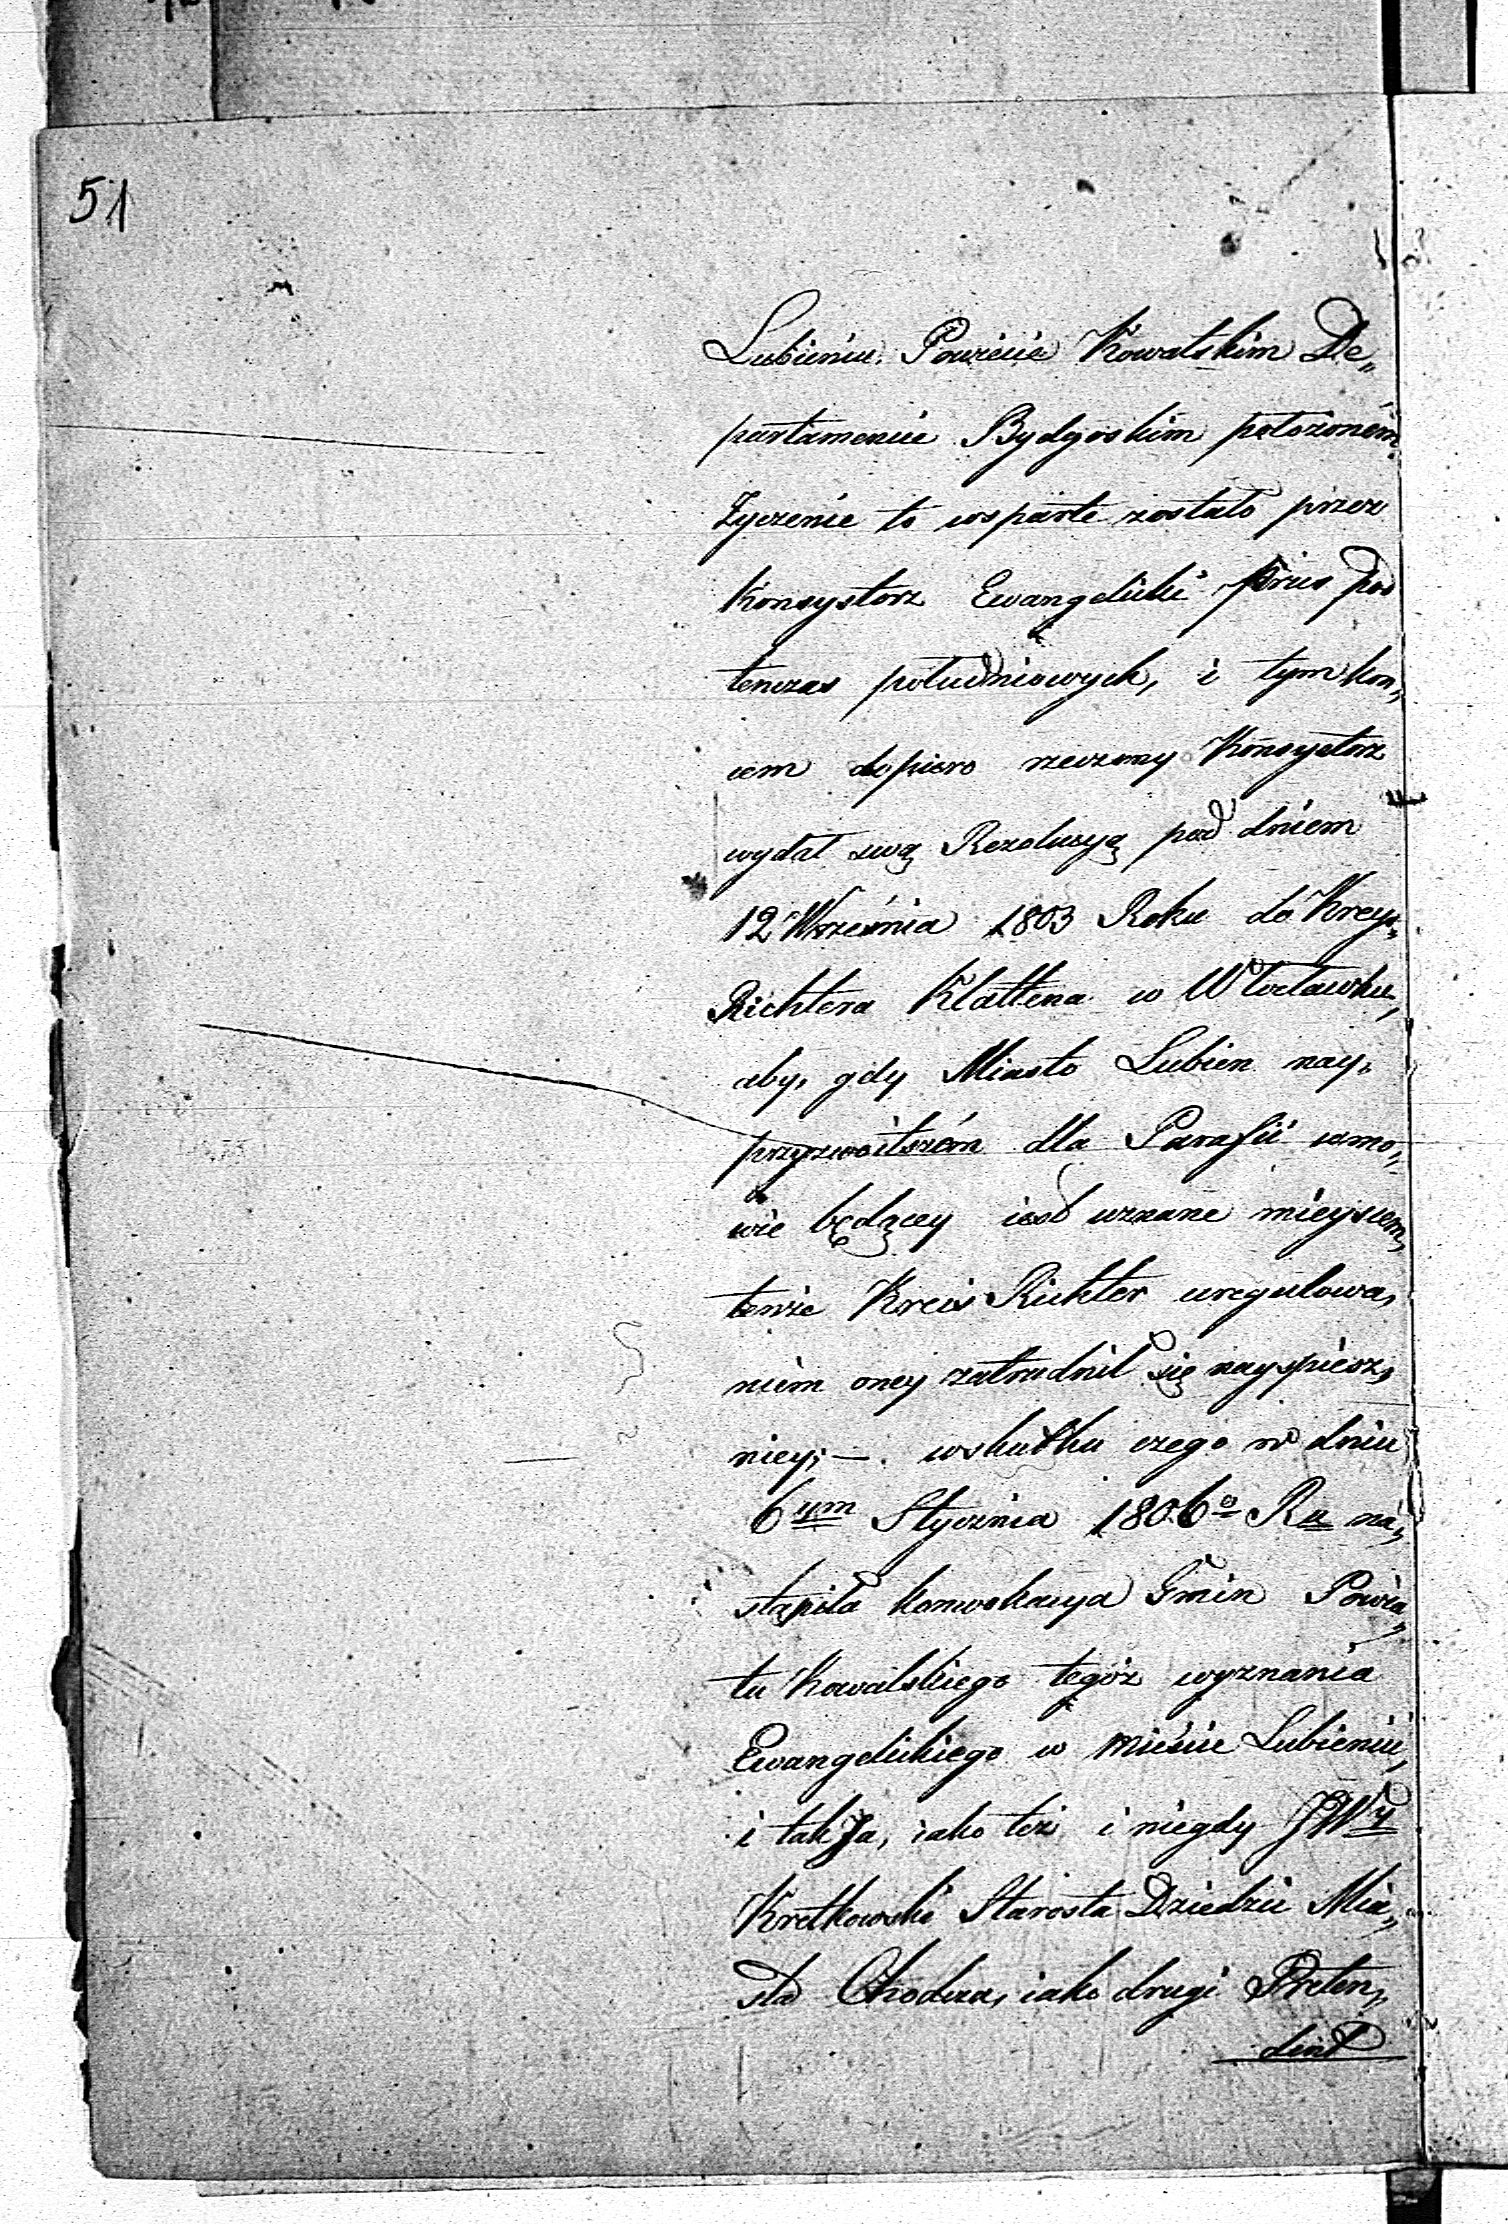 51
Lubieniu Powiecie Kowalskim De„
partamencie Bydgoskim położoném
Życzenie to wsparte zostało przez
Konsystorz Ewangelicki Prus pod
tenczas południowych, i tym koń„
cem dopiero rzeczony Konsystorz
wydał swą Rezolucyą pod dniem
12 Września 1803 Roku do Kreys„
Richtera Klattena w Włocławku,
aby, gdy Miasto Lubien nay„
przyzwoitszém dla Parafii w mo„
wie będącey iest uznane mieyscem,
tenże Kreis Richter uregulowa„
niem oney zatrudnił się nayspiesz„
niey; — wskutku czego w dniu
6ym Stycznia 1806o Ru na„
stąpiła konwokacya Gmin Powia„
tu Kowalskiego tegóż wyznania
Ewangelickiego w mieście Lubieniu,
i tak Ja, iako też i niegdy JWy
Kretkowski Starosta Dziedzic Mia„
sta Chodcza, iako drugi Preten„
dent